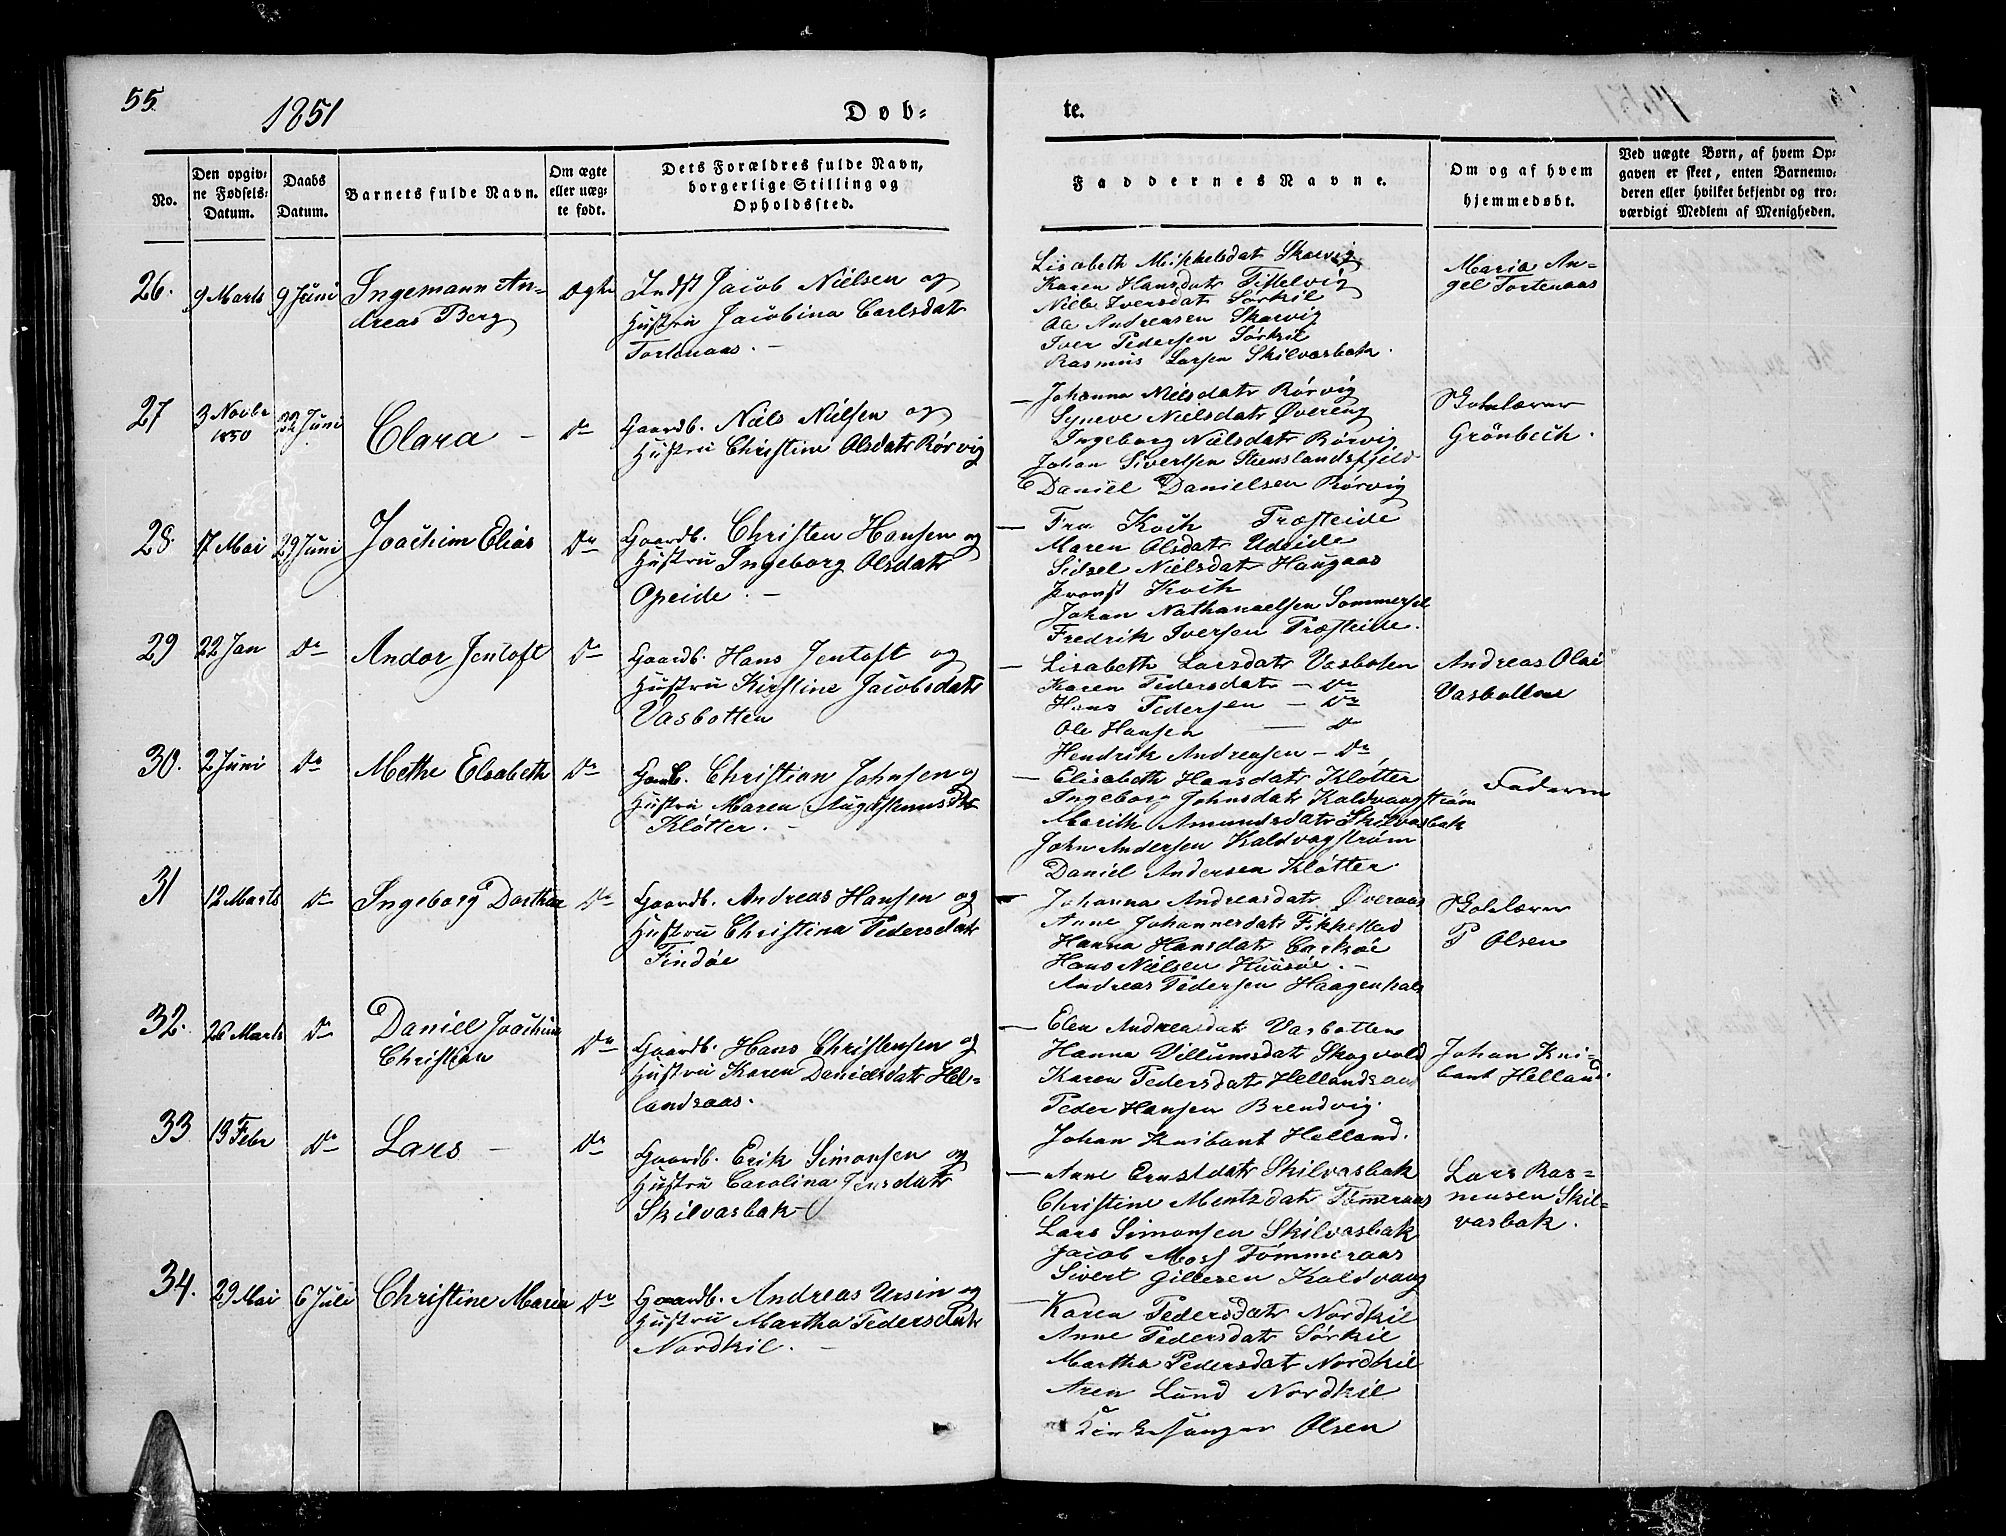 55.
1851
Døb=
te.
No.
Den opgiv=
ne Fødsels=
Datum.
Daabs
Datum.
Barnets fulde Navn.
Om ægte
eller uæg=
te født.
Dets Forældres fulde Navn,
borgerlige Stilling og
Opholdssted.
Faddernes Navne.
Om og af hvem
hjemmedøbt.
Ved uægte Børn, af hvem Op=
gaven er skeet, enten Barnemo=
deren eller hvilket bekjendt og tro=
værdigt Medlem af Menigheden.
26.
9 Marts
9 Juni
Ingemann An=
dreas Berg
ægte
Indst Jacob Nielsen og
Hustru Jacobina Carlsdatr
Tortenaas. –
Lisabeth Mikkelsdat Skarvig
Karen Hansdatr Tistelvig
Nille Iversdatr Sørkil
Ole Andreasen Skarvig
Iver Pedersen Sørkil
Rasmus Larsen Skilvasbak.
Maria An=
gel Tortenaas
27
3 Novbr
1850
22 Juni
Clara –
Do
Gaardb. Niels Nielsen og
Hustru Christine Olsdatr Rørvig
– Johanna Nielsdatr Rørvig
Syneve Nielsdatr Øvereng
Ingeborg Nielsdatr Rørvig
Johan Sivertsen Steenslandsfjeld
Daniel Danielsen Rørvig
Skolelærer
Grønbech.
28.
17 Mai
29 Juni
Joachim Elias
Do
Gaardb. Christen Hansen og
Hustru Ingeborg Olsdatr
Opeide. –
– Fru Koch Præsteide
Maren Olsdatr Udeide
Sidsel Nielsdatr Haugaas
Provst Koch
Johan Nathanaelsen Sommersel
Fredrik Iversen Præsteide.
29
22 Jan
Do
Andor Jentoft
Do
Gaardb. Hans Jentoft og
Hustru Kirstine Jacobsdatr
Vasbotten
– Lisabeth Larsdatr Vasboten
Karen Pedersdatr – Do
Hans Pedersen – Do
Ole Hansen – Do
Hendrik Andreasen – Do
Andreas Olai
Vasbotten
30.
2 Juni
Do
Methe Elsabeth
Do
Gaardb. Christian Johnsen og
Hustru Maren Augustinus Dr
Kløtter. –
– Elisabeth Hansdatr Kløtter
Ingeborg Johnsdatr Kaldvaagstrøm
Marith Amundsdatr Skilvasbak
John Andersen Kaldvagstrøm
Daniel Andersen Kløtter
Faderen
31
12 Marts
Do
Ingeborg Dorthea
Do
Gaardb. Andreas Hansen og
Hustru Christina Pedersdatr
Findøe
– Johanna Andreasdatr Øveraas
Anne Johannesdatr Fikkestad
Hanna Hansdatr
Hans Nielsen –
Andreas Pedersen Haagenhals
Skolelærer
P Olsen
32.
26 Marts
Do
Daniel Joachim
Christian
Do
Gaardb. Hans Christensen og
Hustru Karen Danielsdatr Hel=
landsaas.
– Elen Andreasdatr Vasbotten
Hanna Villumsdatr Skogvold
Karen Pedersdatr Hellandsaas
Peder Hansen Brendvig.
Johan Knibant Helland.
Johan Kni=
bant Helland
33
13 Febr
Do
Lars –
Do
Gaardb. Erik Simonsen og
Hustru Carolina Jensdatr
Skilvasbak –
– Anne Ernstdatr Skilvasbak
Christine Mentzdatr Tømeraas
Lars Simonsen Skilvasbak
Jacob Moss Tømmeraas
Sivert Gillesen Kaldvaag
Lars Ras=
mussen Skil=
vasbak.
34.
29 Mai
6 Juli
Christine Maria
Do
Gaardb. Andreas Ursin og
Hustru Martha Pedersdatr
Nordkil. –
– Karen Pedersdatr Nordkil
Anne Pedersdatr Sørkil
Martha Pedersdatr Nordkil
Aren Lund Nordkil
Kirkesanger Olsen